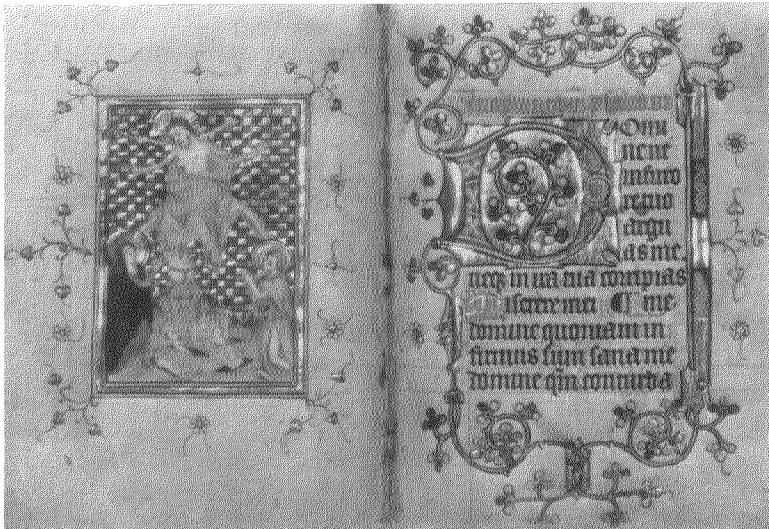 Domi
ne ne
in furo
re tuo
argu
as me
neqz in ira tua corripias
Miserere mei ¶ me
domine quoniam in
firmus sum sana me
domine qm̄ conturba